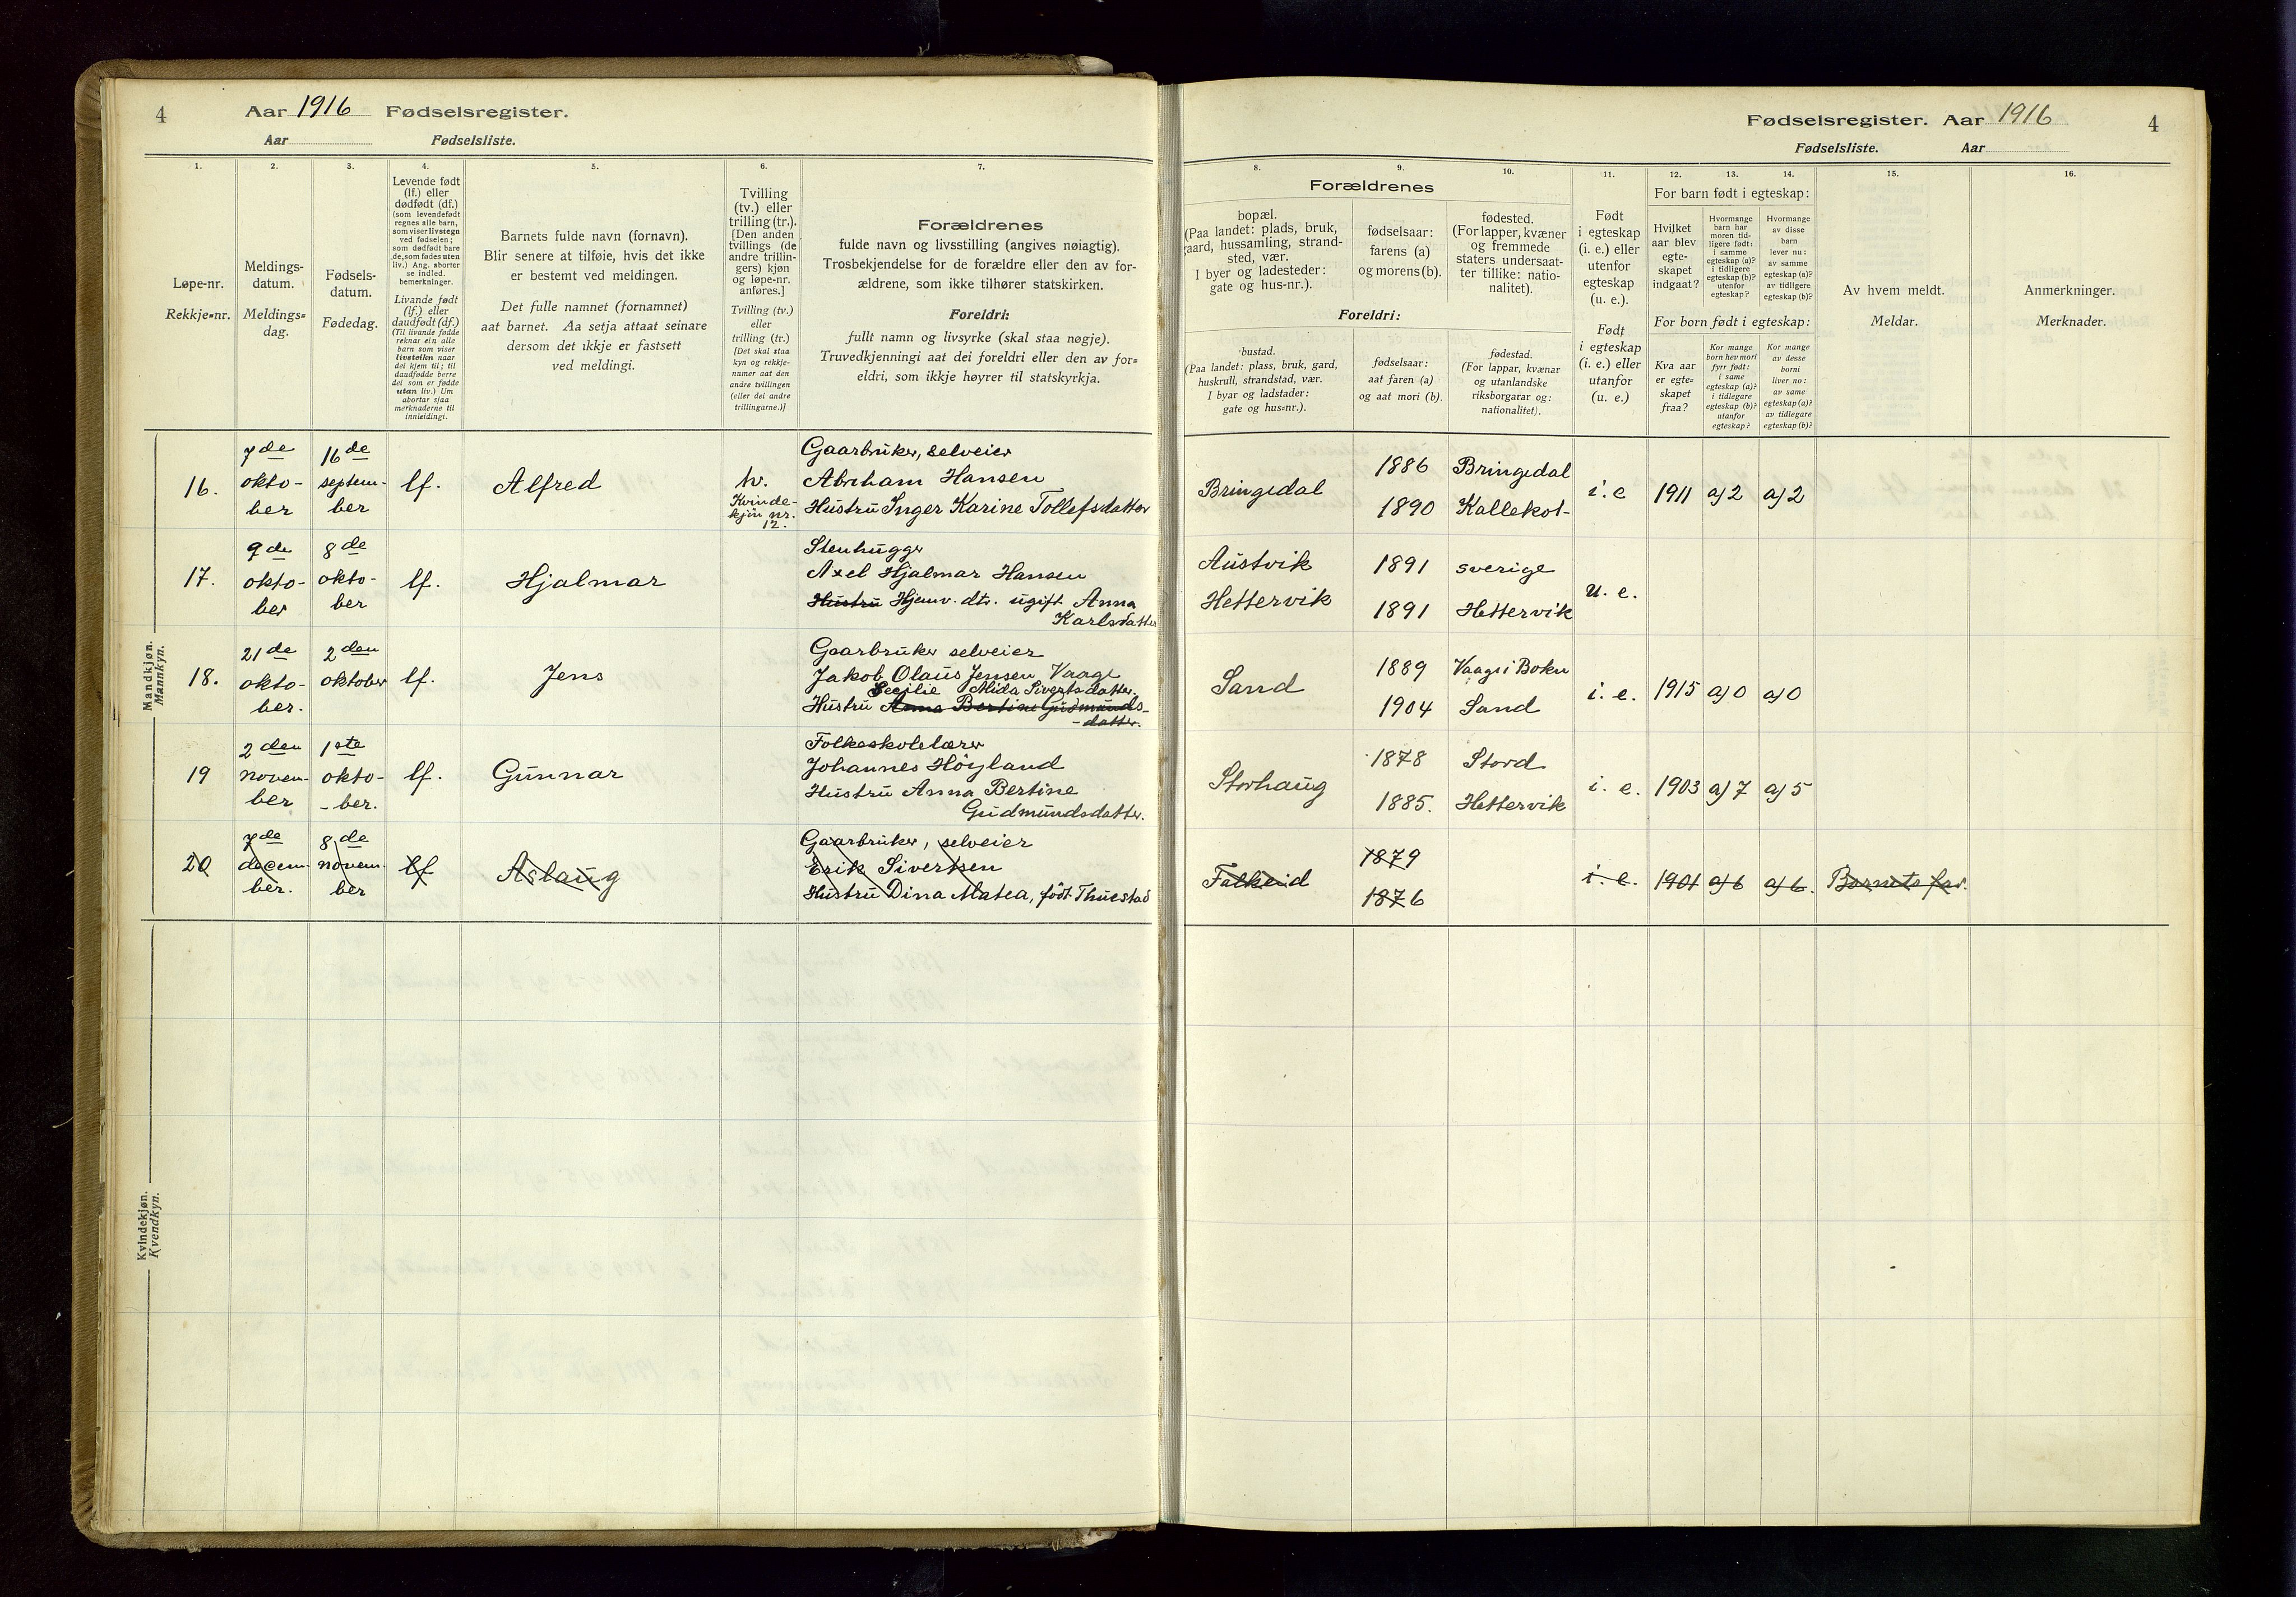 4
Aar 1916 Fødselsregister.
Aar Fødselsliste.
1.
2.
3.
4.
5.
6.
7.
Løpe-nr.
Rekkje=nr.
Meldings-
datum.
Meldings=
dag.
Fødsels-
datum.
Fødedag.
Levende født
(lf.) eller
dødfødt (df.)
(som levendefødt
regnes alle barn,
som viser livstegn
ved fødselen;
som dødfødt bare
de, som fødes uten
liv.) Ang. aborter
se indled.
bemerkninger.
Livande født
(lf.) eller
daudfødt (df.)
(Til livande fødde
reknar ein alle
barn som viser
livsteikn naar
dei kjem til; til
daudfødde berre
dei som er fødde
utan liv.) Um
abortar sjaa
merknaderne til
innleidingi.
Barnets fulde navn (fornavn).
Blir senere at tilføie, hvis det ikke
er bestemt ved meldingen.
Det fulle namnet (fornamnet)
aat barnet. Aa setja attaat seinare
dersom det ikkje er fastsett
ved meldingi.
Tvilling
(tv.) eller
trilling (tr.).
[Den anden
tvillings (de
andre trillin-
gers) kjøn
og løpe-nr.
anføres.]
Tvilling (tv.)
eller
trilling (tr.)
[Det skal staa
kyn og rekkje-
numer aat den
andre tvillingen
(eller dei andre
trillingarne.)]
Forældrenes
fulde navn og livsstilling (angives nøiagtig).
Trosbekjendelse for de forældre eller den av for-
ældrene, som ikke tilhører statskirken.
Foreldri:
fullt namn og livsyrke (skal staa nøgje).
Truvedkjenningi aat dei foreldri eller den av for=
eldri, som ikkje høyrer til statskyrkja.
Mandkjøn.
Mannkyn.
16.
7de
okto-
ber
16de
septem-
ber
lf.
Alfred
tv.
Kvinde-
kjøn nr.
12.
Gaarbruker, selveier
Abrham Hansen
Hustru Inger Karine Tollefsdatter
17.
9de
okto-
ber
8de
okto-
ber
lf.
Hjalmar
Stenhugger
Axel Hjalmar Hansen
Hustru Hjemv. dtr. ugift Anna
Karlsdatter
18.
21de
okto-
ber.
2den
oktober
lf.
Jens
Gaarbruker selveier
Jakob Olaus Jensen Vaage
Secilie Alida Sivertsdatter.
Hustru Anna Bertine Gudmunds-
-datter.
19
2den
novem-
ber
1ste
okto-
-ber.
lf.
Gunnar
Folkeskolelærer
Johannes Höyland
Hustru Anna Bertine
Gudmundsdatter.
20
7de
decem-
ber.
8de
novem-
ber
lf
Aslaug
Gaarbruker, selveier
Erik Sivertsen
Hustru Dina Matea, födt Thuestad
Kvindekjøn.
Kvendkyn.
Fødselsregister. Aar 1916
4
Fødselsliste. Aar
8.
9.
10.
11.
12.
13.
14.
15.
16.
Forældrenes
bopæl.
(Paa landet: plads, bruk,
gaard, hussamling, strand-
sted, vær.
I byer og ladesteder:
gate og hus-nr.).
fødselsaar:
farens (a)
og morens (b).
fødested.
(For lapper, kvæner
og fremmede
staters undersaat-
ter tillike: natio-
nalitet).
Foreldri:
bustad.
(Paa landet: plass, bruk, gard,
huskrull, strandstad, vær.
I byar og ladstader:
gate og hus=nr.).
fødselsaar:
aat faren (a)
og aat mori (b).
fødestad.
(For lappar, kvænar
og utanlandske
riksborgarar og:
nationalitet).
Født
i egteskap
(i. e.) eller
utenfor
egteskap
(u. e.).
Født
i egteskap
(i. e.) eller
utanfor
(u. e.)
For barn født i egteskap:
Hvilket
aar blev
egte-
skapet
indgaat?
Hvormange
barn har
moren tid-
ligere født:
i samme
egteskap (a)?
i tidligere
egteskap (b)?
utenfor
egteskap?
Hvormange
av disse
barn
lever nu:
av samme
egteskap (a)?
av tidligere
egteskap (b)?
For born født i egteskap:
Kva aar
er egte=
skapet
fraa?
Kor mange
born hev mori
fyrr født:
i same
egteskap (a)?
i tidlegare
egteskap (b)?
utanfor
egteskap?
Kor mange
av desse
borni
liver no:
av same
egteskap (a)?
av tidlegare
egteskap (b)?
Av hvem meldt.
Meldar.
Anmerkninger.
Merknader.
Bringedal
1886
1890
Bringedal
Kallekot-
i. e
1911
a) 2
a) 2
Austvik
Hettervik
1891
1891
sverige
Hettervik
u. e.
Sand
1889
1904
Vaage i Bokn
Sand
i. e.
1915
a) 0
a) 0
Storhaug
1878
1885.
Stord
Hettervik
i. e.
1903
a) 7
a) 5
Falkeid
1879
1876
i. e.
1901
a) 6
a) 6.
Barnets far.